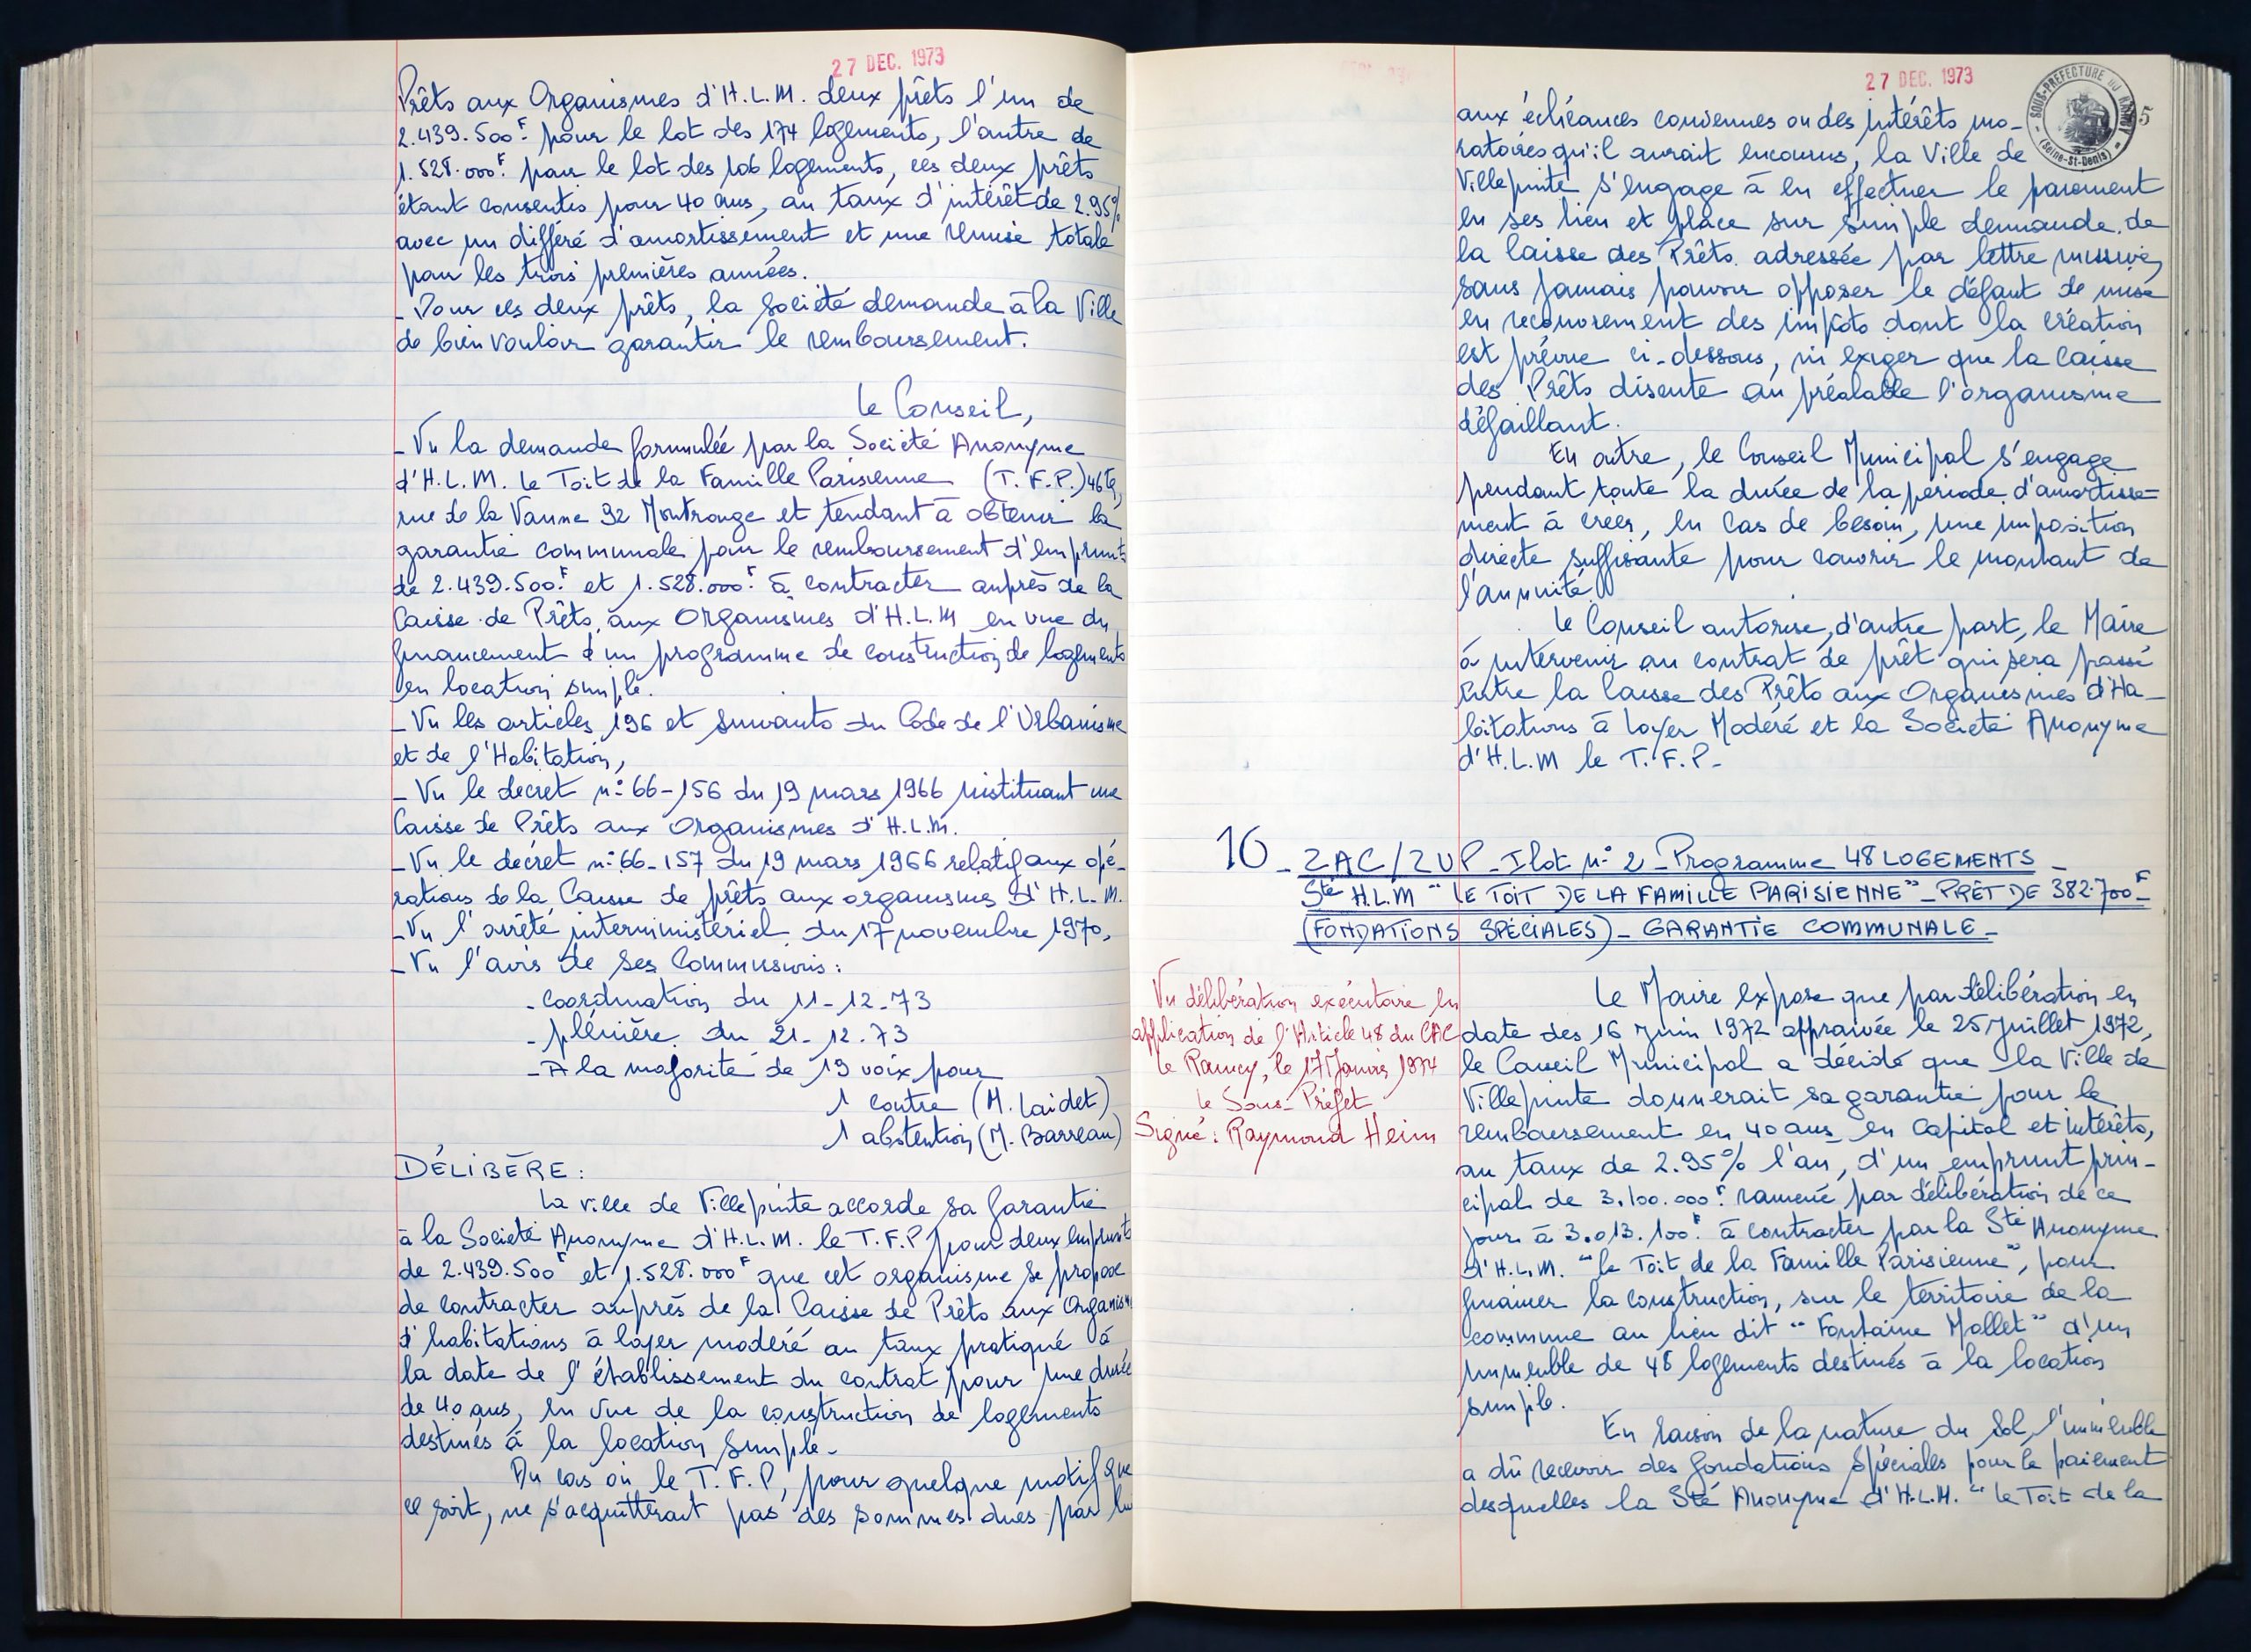 27 DEC. 1973
Prêts aux Organismes d'H.L.M. deux prêts l'un de
2.439.500F pour le lot des 174 logements, l'autre de
1.528.000F pour le lot des 106 logements, ces deux prêts
étant consentis pour 40 ans, au taux d'intérêt de 2.95%
avec un différé d'amortissement et une remise totale
pour les trois premières années.
- Pour ces deux prêts, la société demande à la Ville
de bien vouloir garantir le remboursement.
Le Conseil,
- Vu la demande formulée par la Société Anonyme
d'H.L.M. le Toit de la Famille Parisienne (T.F.P.) 46
rue de la Vanne 92 Montrouge et tendant à obtenir la
garantie communale pour le remboursement d'emprunts
de 2.439.500F et 1.528.000F à contracter auprès de la
Caisse de Prêts aux Organismes d'H.L.M en vue du
financement d'un programme de construction de logements
en location simple.
- Vu les articles 196 et suivants du Code de l'Urbanisme
et de l'Habitation,
- Vu le décret n° 66-156 du 19 mars 1966 instituant une
Caisse de Prêts aux Organismes d'H.L.M.
- Vu le décret n° 66-157 du 19 mars 1966 relatif aux opé-
rations de la Caisse de prêts aux organismes d'H.L.M.
- Vu l'arrêté interministériel du 17 novembre 1970,
- Vu l'avis de ses Commissions:
- Coordination du 11-12-73
- plénière du 21-12-73
- A la majorité de 19 voix pour
1 contre (M. Laidet)
1 abstention (M. Barreau)
DÉLIBÈRE:
La ville de Villepinte accorde sa Garantie
à la Société Anonyme d'H.L.M. le T.F.P pour deux emprunts
de 2.439.500F et 1.528.000F que cet organisme se propose
de contracter auprès de la Caisse de Prêts aux Organism
d'habitations à loyer modéré au taux pratiqué à
la date de l'établissement du contrat pour une durée
de 40 ans, en vue de la construction de logements
destinés à la location simple.
Au cas où le T.F.P, pour quelque motif que
ce soit, ne s'acquitterait pas des sommes dues par lui
27 DEC. 1973
SOUS-PREFECTURE DU RAINCY
(Seine-St-Denis)
5
aux échéances convenues ou des intérêts mo-
ratoires qu'il aurait encourus, la Ville de
Villepinte s'engage à en effectuer le paiement
en ses lieu et place sur simple demande de
la Caisse des Prêts adressée par lettre missive,
sans jamais pouvoir opposer le défaut de mise
en recouvrement des impôts dont la création
est prévue ci-dessous, ni exiger que la Caisse
des Prêts discute au préalable l'organisme
défaillant.
En outre, le Conseil Municipal s'engage
pendant toute la durée de la période d'amortisse-
ment à créer, en cas de besoin, une imposition
directe suffisante pour couvrir le montant de
l'annuité.
Le Conseil autorise, d'autre part, le Maire
à intervenir au contrat de prêt qui sera passé
entre la Caisse des Prêts aux Organismes d'Ha-
bitations à Loyer Modéré et la Société Anonyme
d'H.L.M le T.F.P-
10 - ZAC/ZUP - Ilot n° 2 - Programme 48 LOGEMENTS -
Sté H.L.M "LE TOIT DE LA FAMILLE PARISIENNE" - PRÊT DE 382.700F -
(FONDATIONS SPÉCIALES) - GARANTIE COMMUNALE -
Vu délibération exécutoire en
application de l'Article 48 du CAC
Le Raincy, le 17 Janvier 1974
Le Sous-Préfet
Signé: Raymond Heim
Le Maire expose que par délibération en
date des 16 Juin 1972 approuvée le 25 Juillet 1972,
le Conseil Municipal a décidé que la Ville de
Villepinte donnerait sa garantie pour le
remboursement en 40 ans en Capital et intérêts,
au taux de 2.95% l'an, d'un emprunt prin-
cipal de 3.100.000F ramené par délibération de ce
jour à 3.013.100F à contracter par la Sté Anonyme
d'H.L.M. "le Toit de la Famille Parisienne", pour
financer la construction, sur le territoire de la
commune au lieu dit "Fontaine Mallet" d'un
immeuble de 48 logements destinés à la location
simple.
En raison de la nature du Sol, l'immeuble
a dû recevoir des fondations Spéciales pour le paiement
desquelles la Sté Anonyme d'H.L.M. "le Toit de la